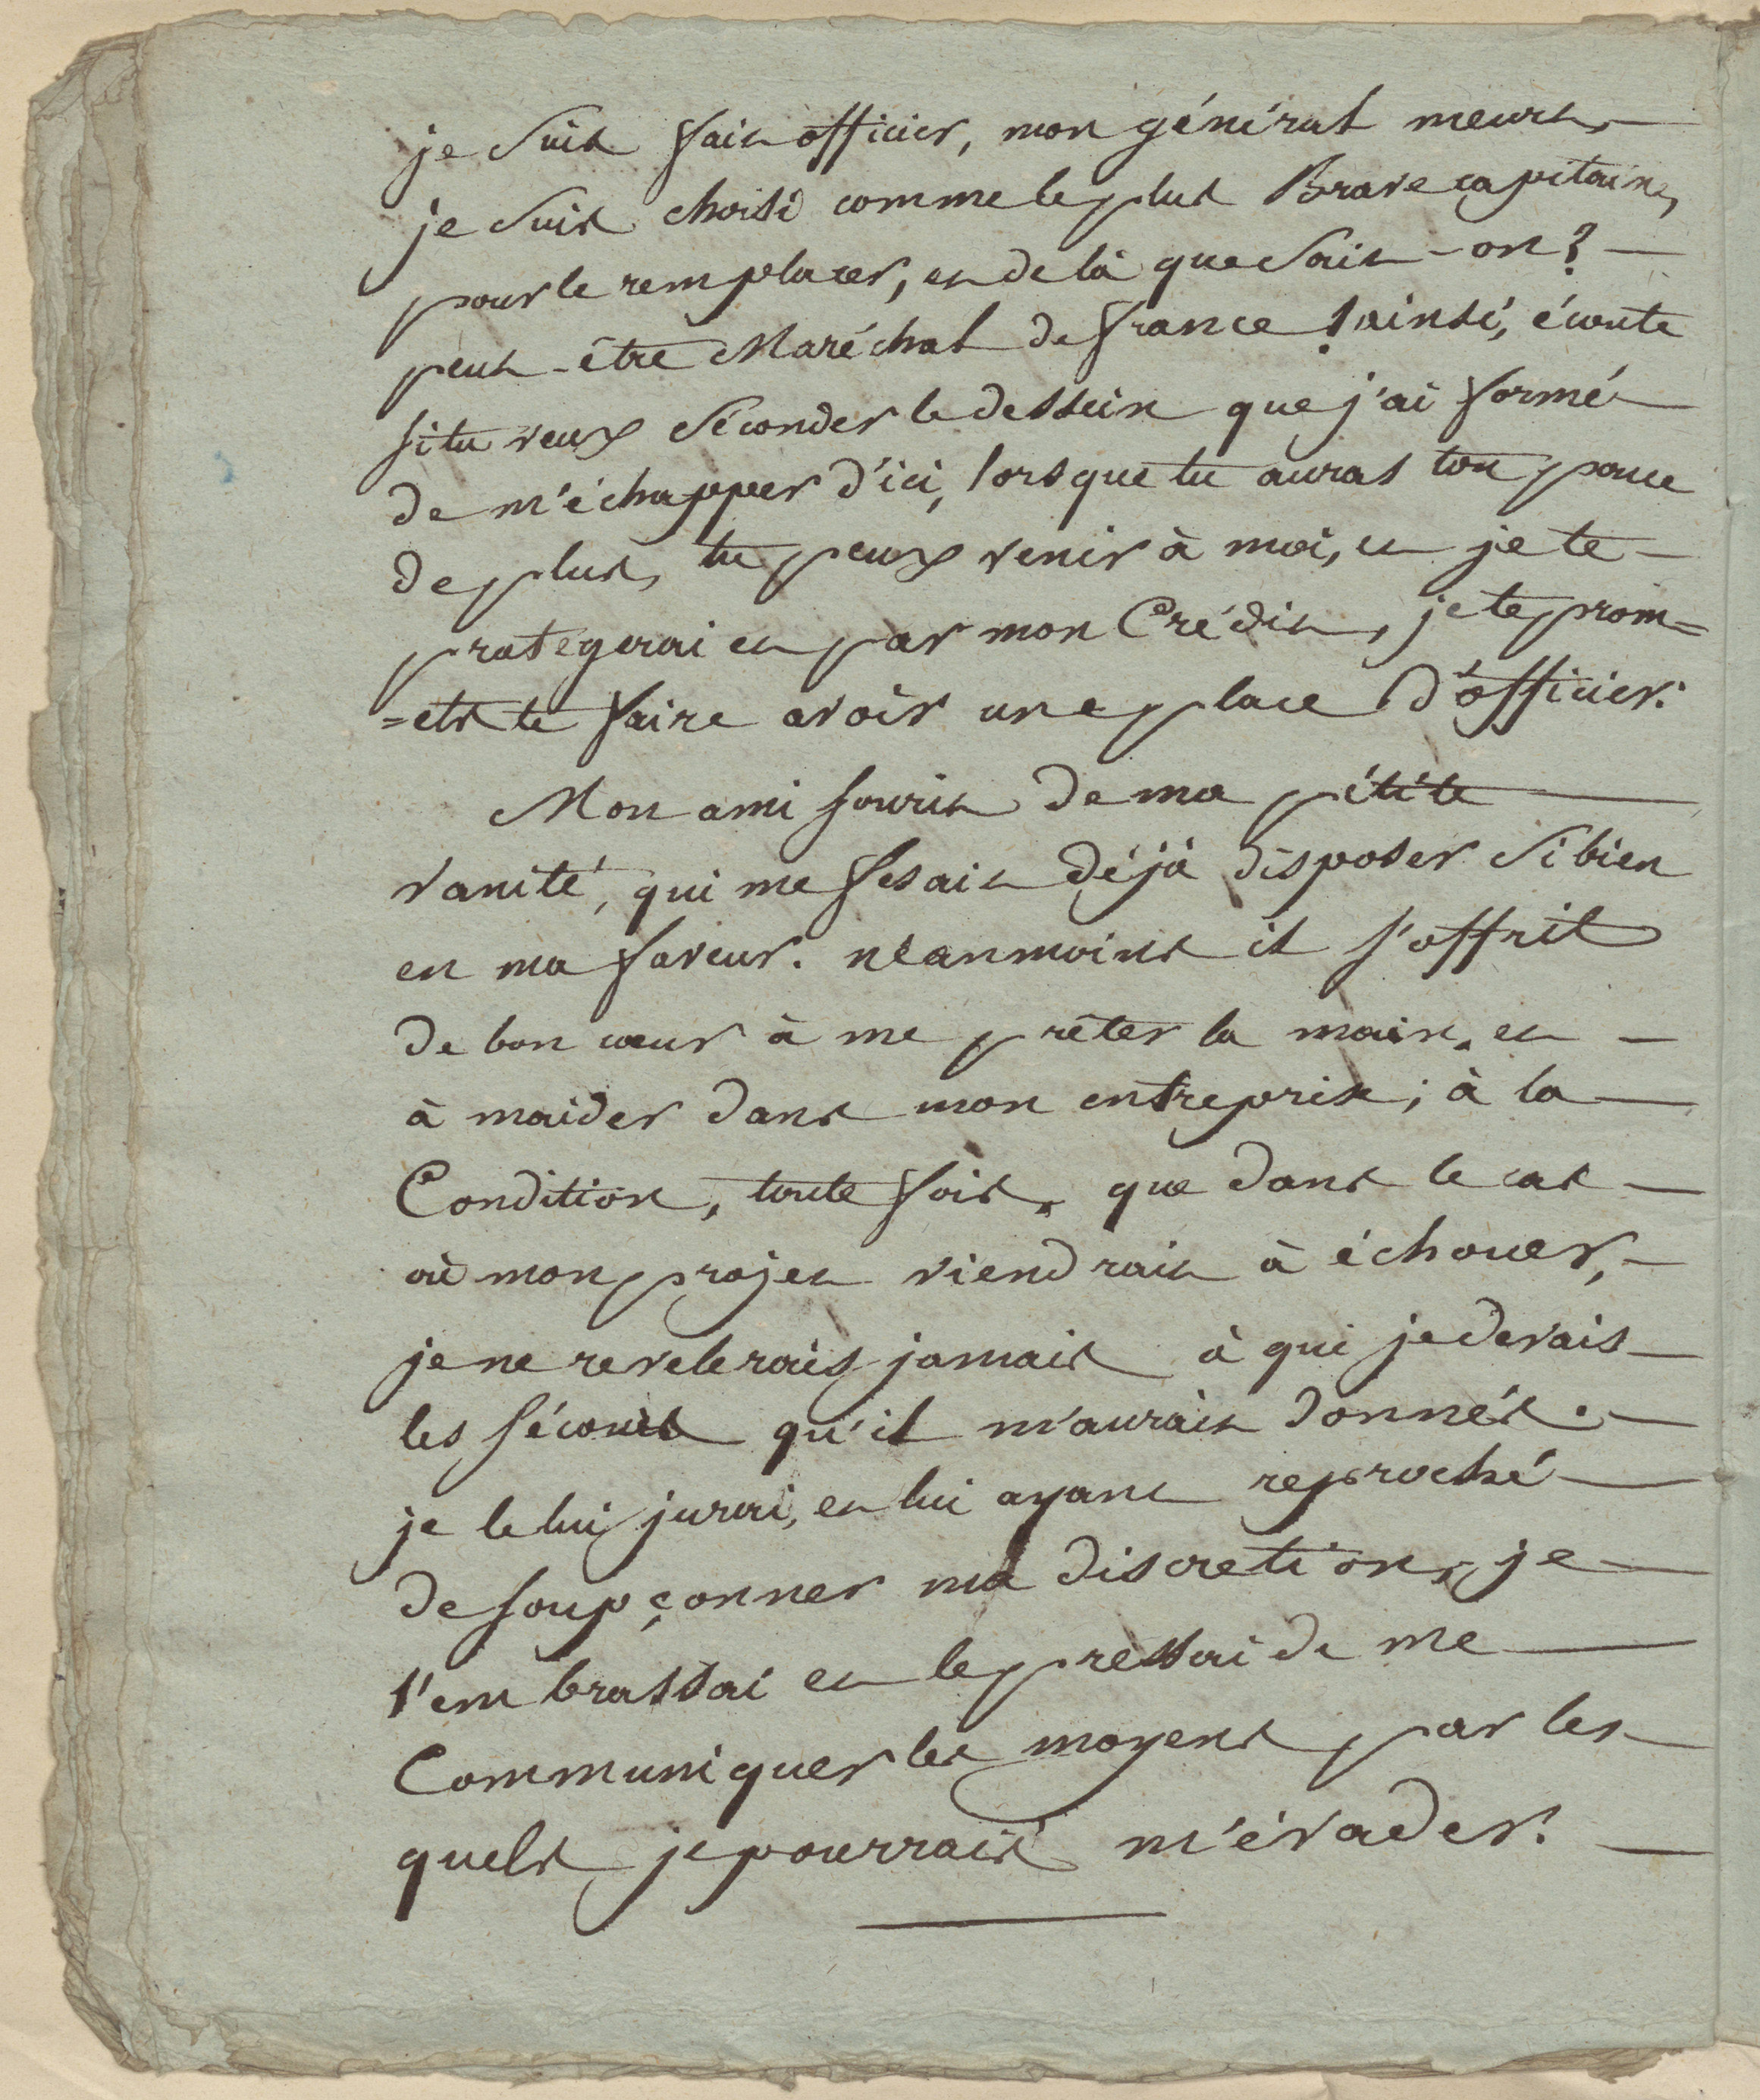 je suis fait officier, mon général meurt,
je suis choisi comme le plus Brave capitaine,
pour le remplacer, et de là que sait-on?
peut-être Maréchal de france! ainsi, écoute
si tu veux séconder le dessein que j'ai formé
de m'échapper d'ici, lorsque tu auras ton pouce
de plus, tu peux venir à moi, et je te
protegerai et par mon Crédit, je te prom=
=ets te faire avoir une place d'officier.
Mon ami sourit de ma pétite
vanité, qui me fesait déjà disposer si bien
en ma faveur. néanmoins il s'offrit
de bon cœur à me prêter la main, et
à maider dans mon entreprise; à la
Condition, toute fois, que dans le cas
où mon projet viendrait à échouer,
je ne revelerais jamais à qui je devais
les sécours qu'il m'aurait donnés.
je le lui jurai, et lui ayant reproché
de soupçonner ma discretion, je
l'embrassai et le pressai de me
Communiquer les moyens par les
quels je pourrais m'évader.